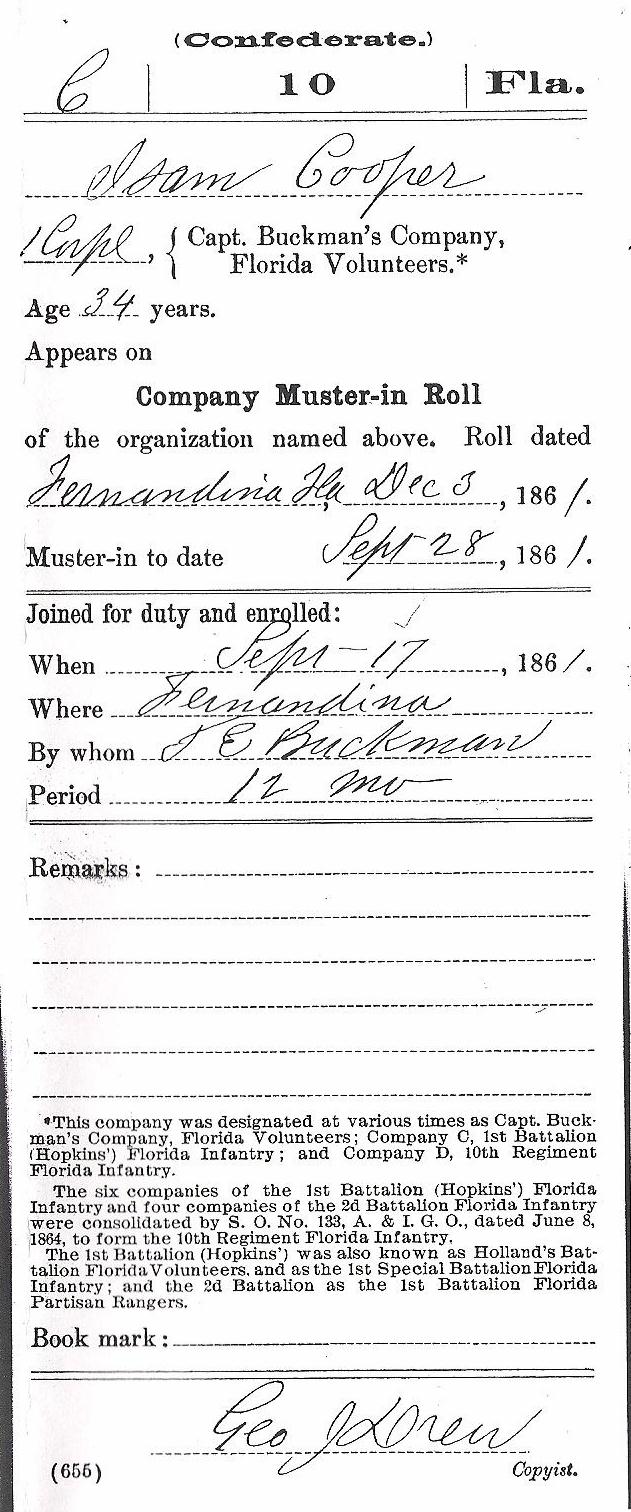 (Confederate.)
C | 10 | Fla.
Isam Cooper
1 Corpl, { Capt. Buckman's Company,
Florida Volunteers.*
Age 34 years.
Appears on
Company Muster-in Roll
of the organization named above. Roll dated
Fernandina Fla Dec 3, 1861.
Muster-in to date Sept 28, 1861.
Joined for duty and enrolled:
When Sept 17, 1861.
Where Fernandina
By whom T E Buckman
Period 12 mo
Remarks:
*This company was designated at various times as Capt. Buck-
man's Company, Florida Volunteers; Company C, 1st Battalion
(Hopkins') Florida Infantry; and Company D, 10th Regiment
Florida Infantry.
The six companies of the 1st Battalion (Hopkins') Florida
Infantry and four companies of the 2d Battalion Florida Infantry
were consolidated by S. O. No. 133, A. & I. G. O., dated June 8,
1864, to form the 10th Regiment Florida Infantry.
The 1st Battalion (Hopkins') was also known as Holland's Bat-
talion Florida Volunteers, and as the 1st Special Battalion Florida
Infantry; and the 2d Battalion as the 1st Battalion Florida
Partisan Rangers.
Book mark:
Geo J Drew
(655) Copyist.